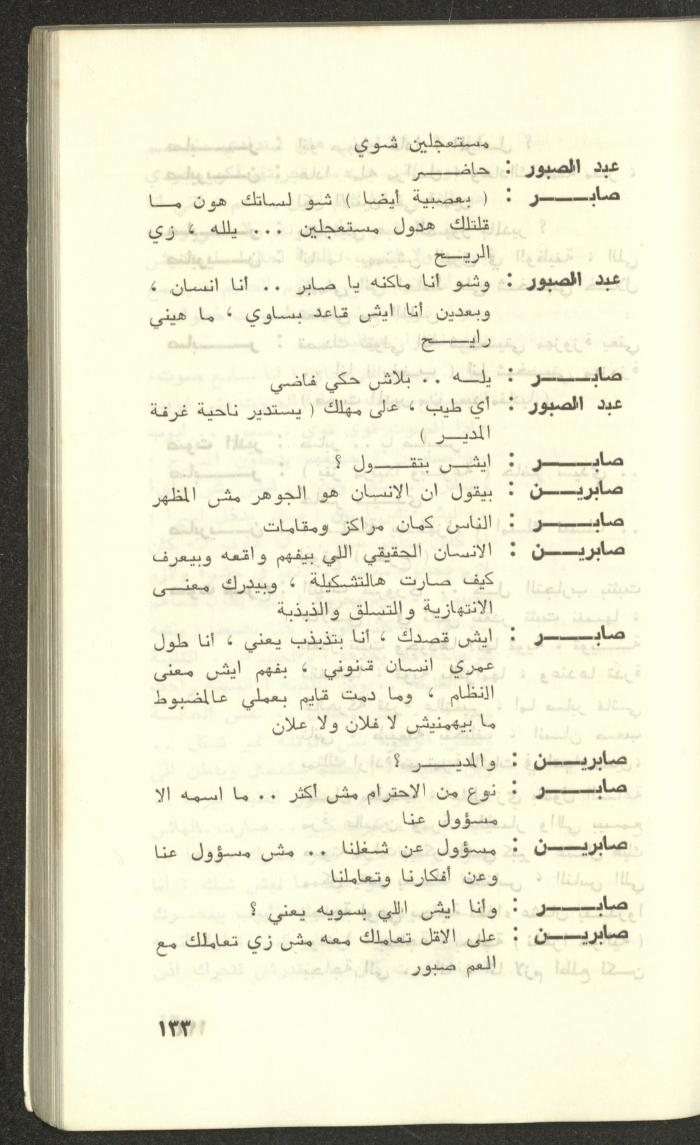 مستعجلين شوي
عبد الصبور : حاضر
صابر : ( بعصبية أيضا ) شو لساتك هون ما
قلتلك هدول مستعجلين ... يلله ، زي
الريح
عبد الصبور : وشو أنا ماكنه يا صابر .. أنا انسان ،
وبعدين أنا ايش قاعد بساوي ، ما هيني
رايح
صابر : يله .. بلاش حكي فاضي
عبد الصبور : أي طيب ، على مهلك ( يستدير ناحية غرفة
المدير )
صابر : ايش بتقول ؟
صابرين : بيقول ان الانسان هو الجوهر مش المظهر
صابر : الناس كمان مراكز ومقامات
صابرين : الانسان الحقيقي اللي بيفهم واقعه وبيعرف
كيف صارت هالتشكيلة ، وبيدرك معنى
الانتهازية والتسلق والذبذبة
صابر : ايش قصدك ، أنا بتذبذب يعني ، أنا طول
عمري انسان قنوني ، بفهم ايش معنى
النظام ، وما دمت قايم بعملي عالمضبوط
ما بيهمنيش لا فلان ولا علان
صابرين : والمدير ؟
صابر : نوع من الاحترام مش أكثر .. ما اسمه الا
مسؤول عنا
صابرين : مسؤول عن شغلنا .. مش مسؤول عنا
وعن أفكارنا وتعاملنا
صابر : وانا ايش اللي بسويه يعني ؟
صابرين : على الاقل تعاملك معه مش زي تعاملك مع
العم صبور
١٣٣